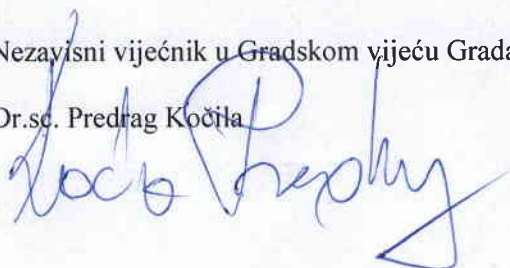 Nezavisni vijećnik u Gradskom vijeću Grada
Dr.sc. Predrag Kočila